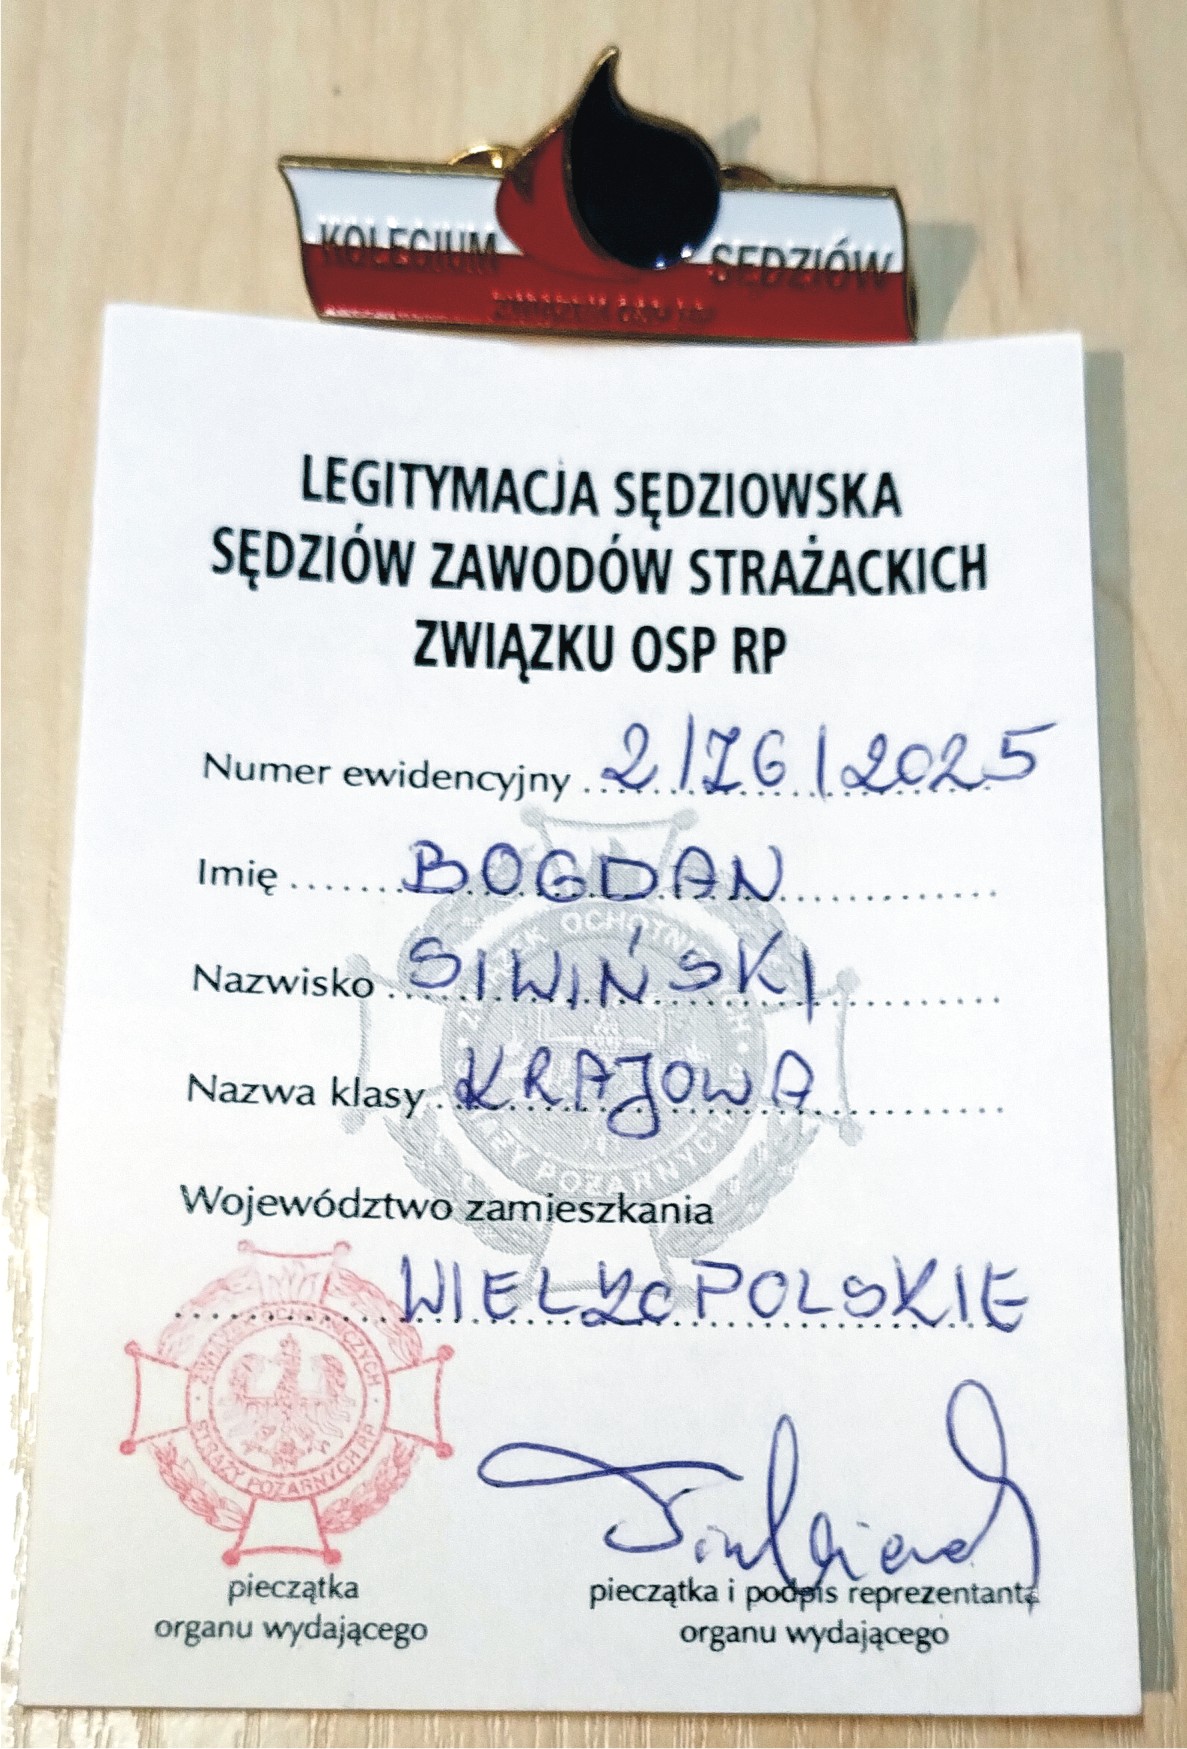 KOLEGIUM SĘDZIÓW
ZWIĄZKU OSP RP
LEGITYMACJA SĘDZIOWSKA
SĘDZIÓW ZAWODÓW STRAŻACKICH
ZWIĄZKU OSP RP
Numer ewidencyjny 2/76/2025
Imię BOGDAN
Nazwisko SIWIŃSKI
Nazwa klasy KRAJOWA
Województwo zamieszkania
WIELKOPOLSKIE
ZWIĄZEK OCHOTNICZYCH STRAŻY POŻARNYCH RP
pieczątka
organu wydającego
pieczątka i podpis reprezentanta
organu wydającego